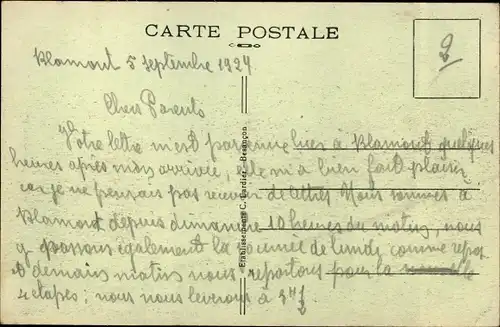 CARTE POSTALE
2
Blamont 5 septembre 1924
Chers Parents
Votre lettre m'est parvenue hier à Blamont quelques
heures après mon arrivée, elle m'a bien fait plaisir
car je ne pensais pas recevoir de lettres. Nous sommes à
Blamont depuis dimanche 10 heures du matin, nous
y passons également la journée de lundi comme repos
et demain matin nous repartons pour la le
4 étapes; nous nous leverons à 3H 1/2
Etablissements C. Lardier - Besançon